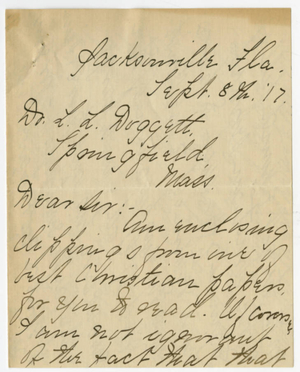 Jacksonville Fla.
Sept. 8th. '17.
Dr. L. L. Doggett,
Springfield,
Mass.
Dear Sir:-
Am enclosing
clippings from one of
best Christian papers,
for you to read. Of course
I am not ignorant
of the fact that that